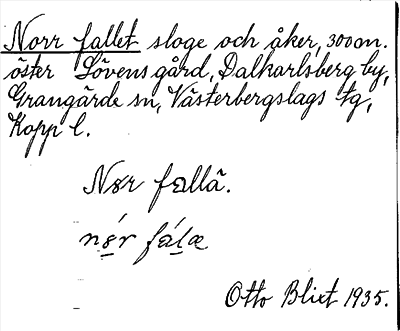 Norr fallet sloge och åker, 300 m.
öster Lövens gård, Dalkarlsberg by,
Grangärde sn, Västerbergslags tg,
Kopp l.
Nꞛr fallä.
nꞛ́r fálæ
Otto Blixt 1935.